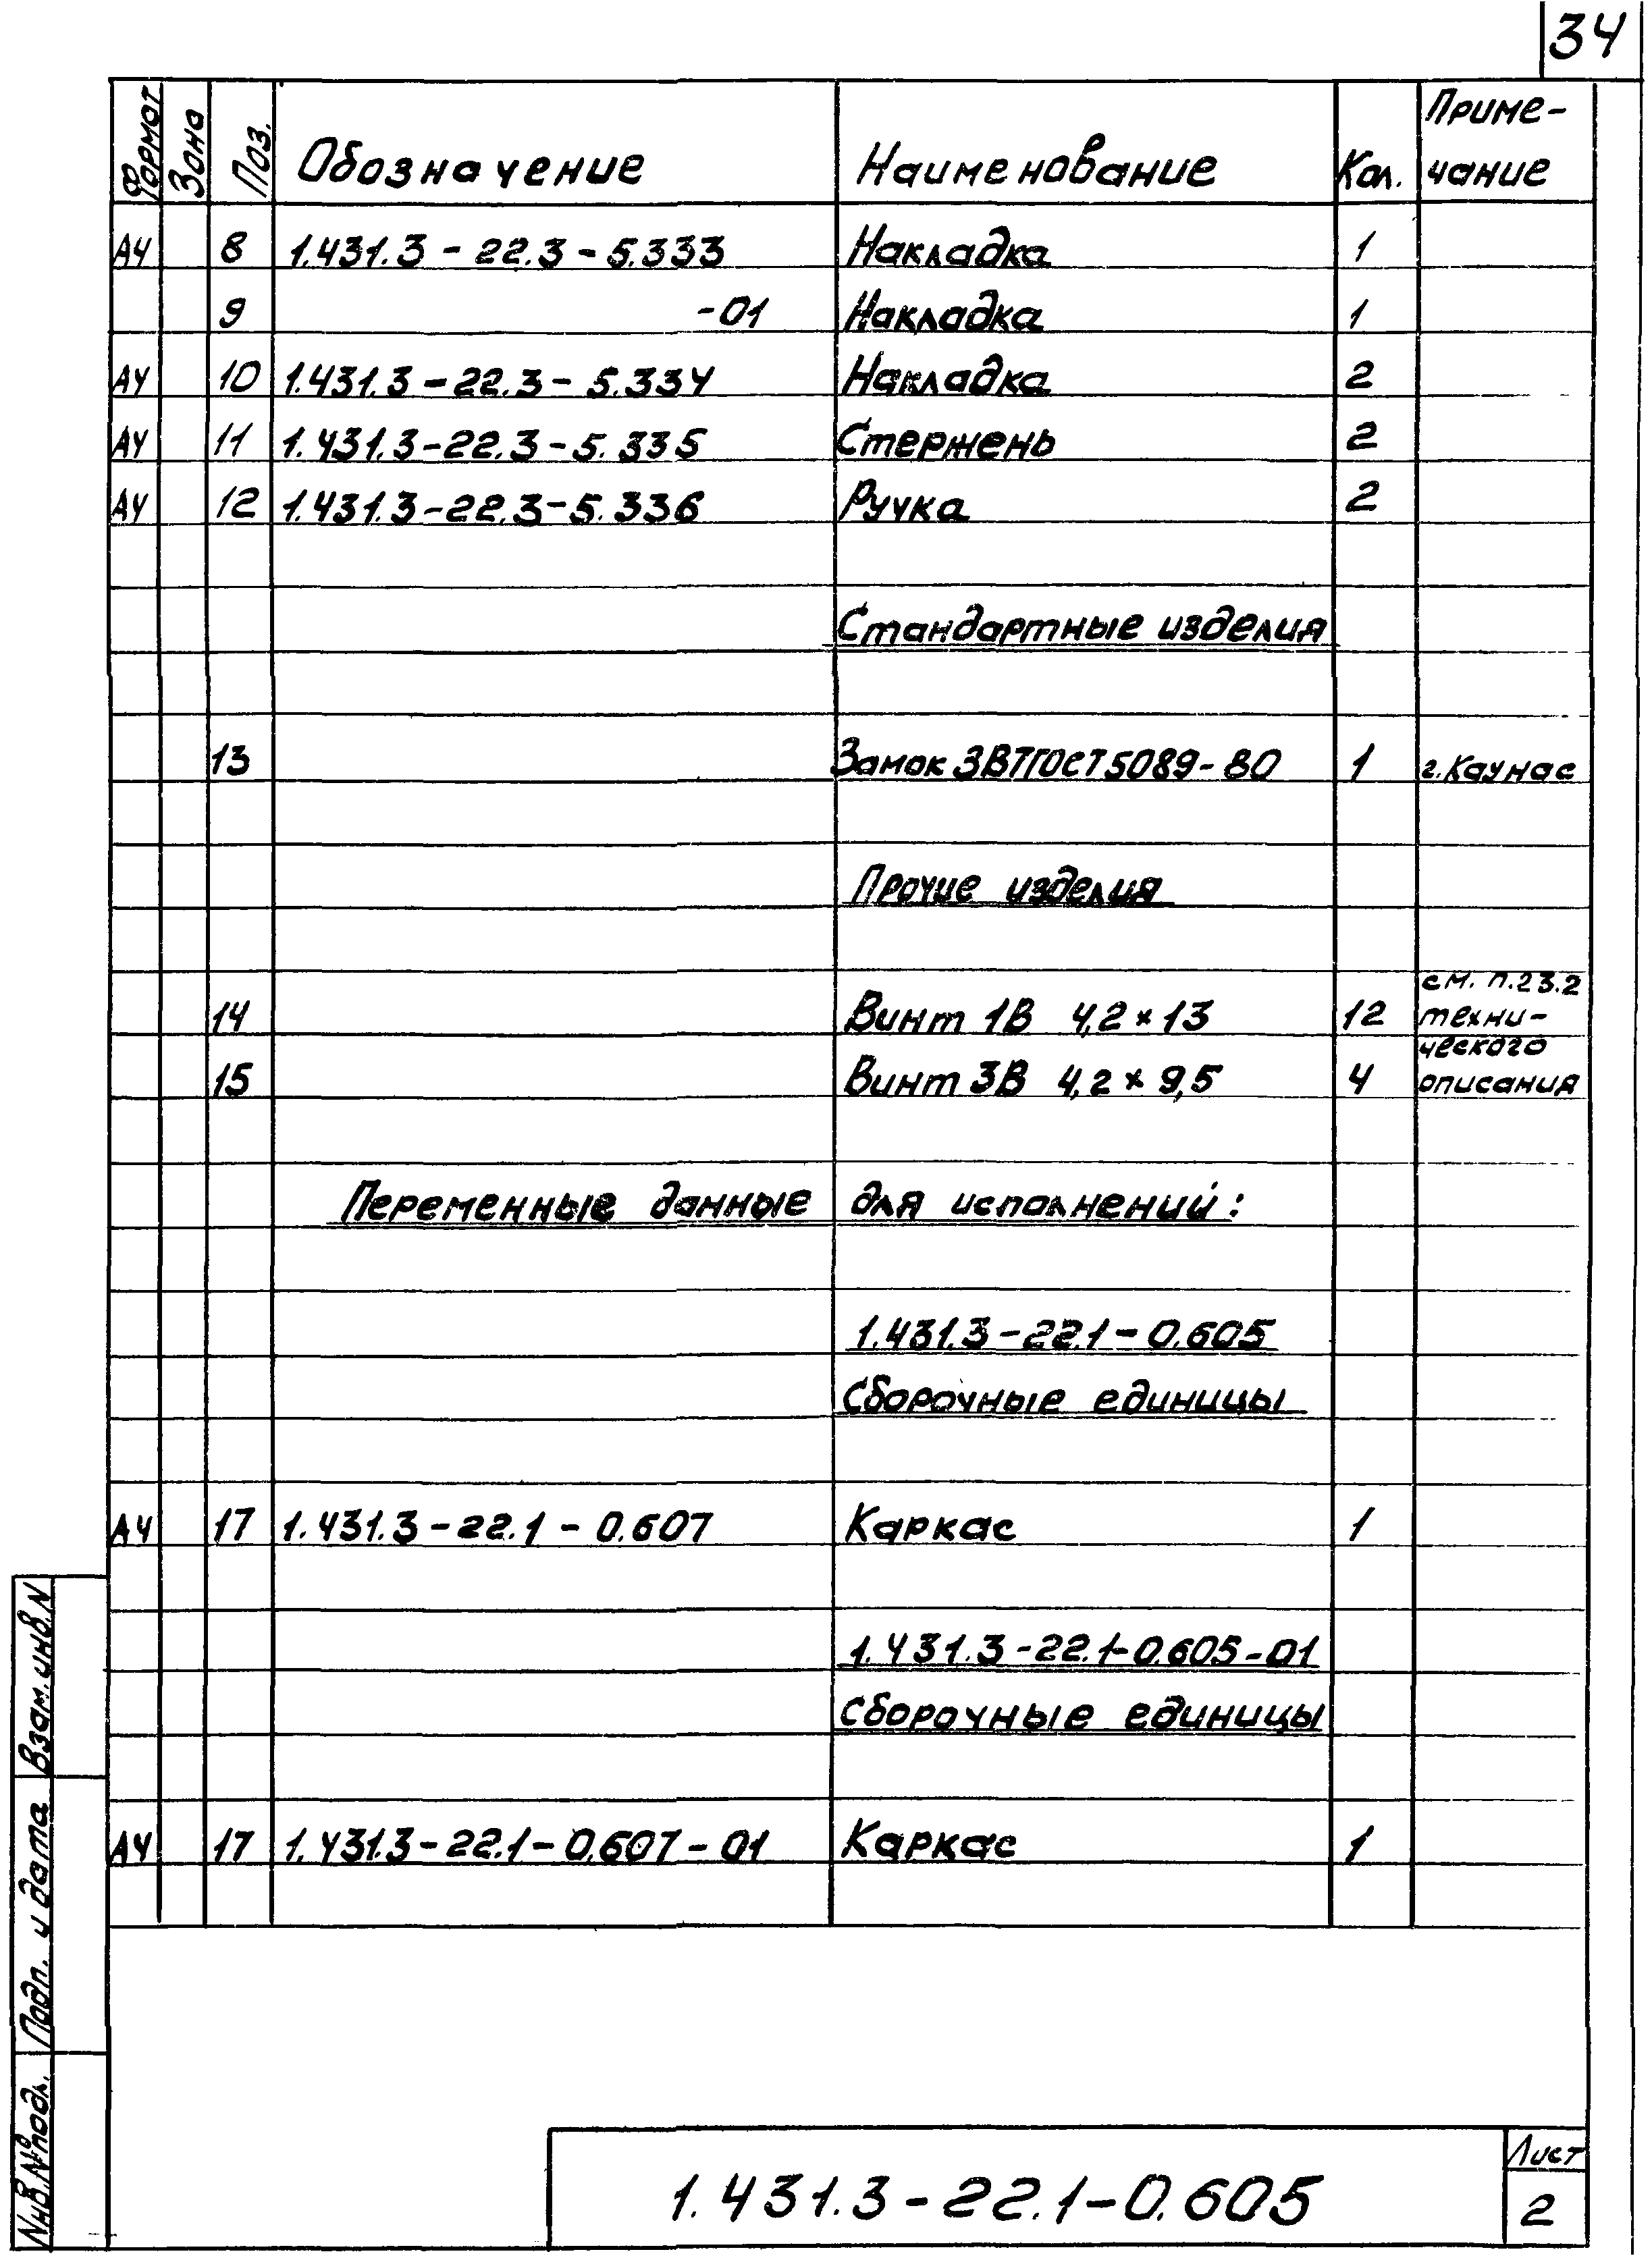 34
Формат Зона Поз. Обозначение Наименование Кол. Приме-
чание
А4 8 1.431.3-22.3-5.333 Накладка 1
9 -01 Накладка 1
А4 10 1.431.3-22.3-5.334 Накладка 2
А4 11 1.431.3-22.3-5.335 Стержень 2
А4 12 1.431.3-22.3-5.336 Ручка 2
Стандартные изделия
13 Замок ЗВТГОСТ5089-80 1 г.Каунас
Прочие изделия
см. п.23.2
14 Винт 1В 4,2×13 12 техни-
ческого
15 Винт 3В 4,2×9,5 4 описания
Переменные данные для исполнений:
1.431.3-22.1-0.605
Сборочные единицы
А4 17 1.431.3-22.1-0.607 Каркас 1
1.431.3-22.1-0.605-01
Сборочные единицы
А4 17 1.431.3-22.1-0.607-01 Каркас 1
Взам.инв.N
Подп. и дата
Инв.№подл.
1.431.3-22.1-0.605
Лист
2